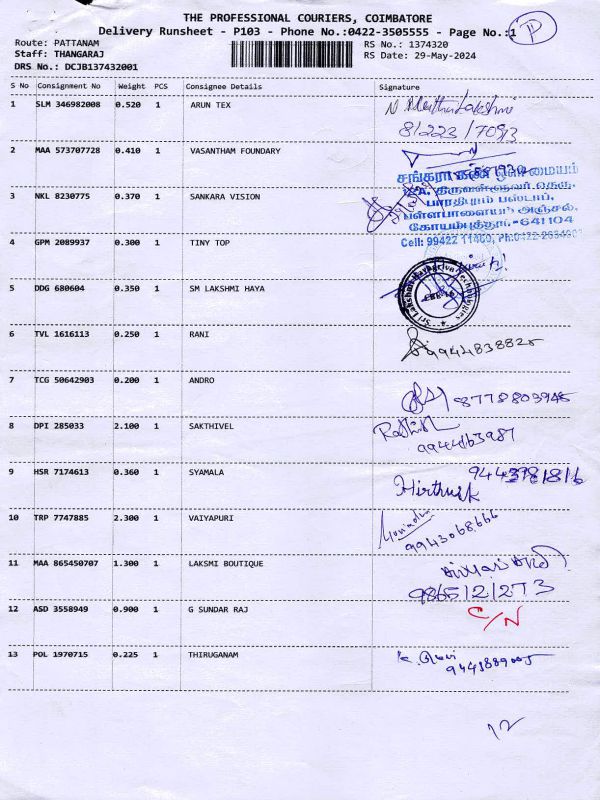 THE PROFESSIONAL COURIERS, COIMBATORE
Delivery Runsheet - P103 - Phone No.:0422-3505555 - Page No.:1 P
Route: PATTANAM RS No.: 1374320
Staff: THANGARAJ RS Date: 29-May-2024
DRS No.: DCJB137432001
S No Consignment No Weight PCS Consignee Details Signature
1 SLM 346982008 0.520 1 ARUN TEX
81223 17093
2 MAA 573707728 0.410 1 VASANTHAM FOUNDARY
சங்கரா கண்
3 NKL 8230775 0.370 1 SANKARA VISION
பாரதிபுரம் பஸ்டாப்,
பள்ளபாளையம் அஞ்சல்,
கோயம்புத்தூர்.-641104
4 GPM 2089937 0.300 1 TINY TOP
Cell: 99422 11460,
5 DDG 680604 0.350 1 SM LAKSHMI HAYA
Sri Lakshmi
6 TVL 1616113 0.250 1 RANI
9944838825
7 TCG 50642903 0.200 1 ANDRO
8778809945
8 DPI 285033 2.100 1 SAKTHIVEL
9944463987
9 HSR 7174613 0.360 1 SYAMALA
10 TRP 7747885 2.300 1 VAIYAPURI
9943068666
11 MAA 865450707 1.300 1 LAKSMI BOUTIQUE
9865121273
12 ASD 3558949 0.900 1 G SUNDAR RAJ
C/N
13 POL 1970715 0.225 1 THIRUGANAM
12